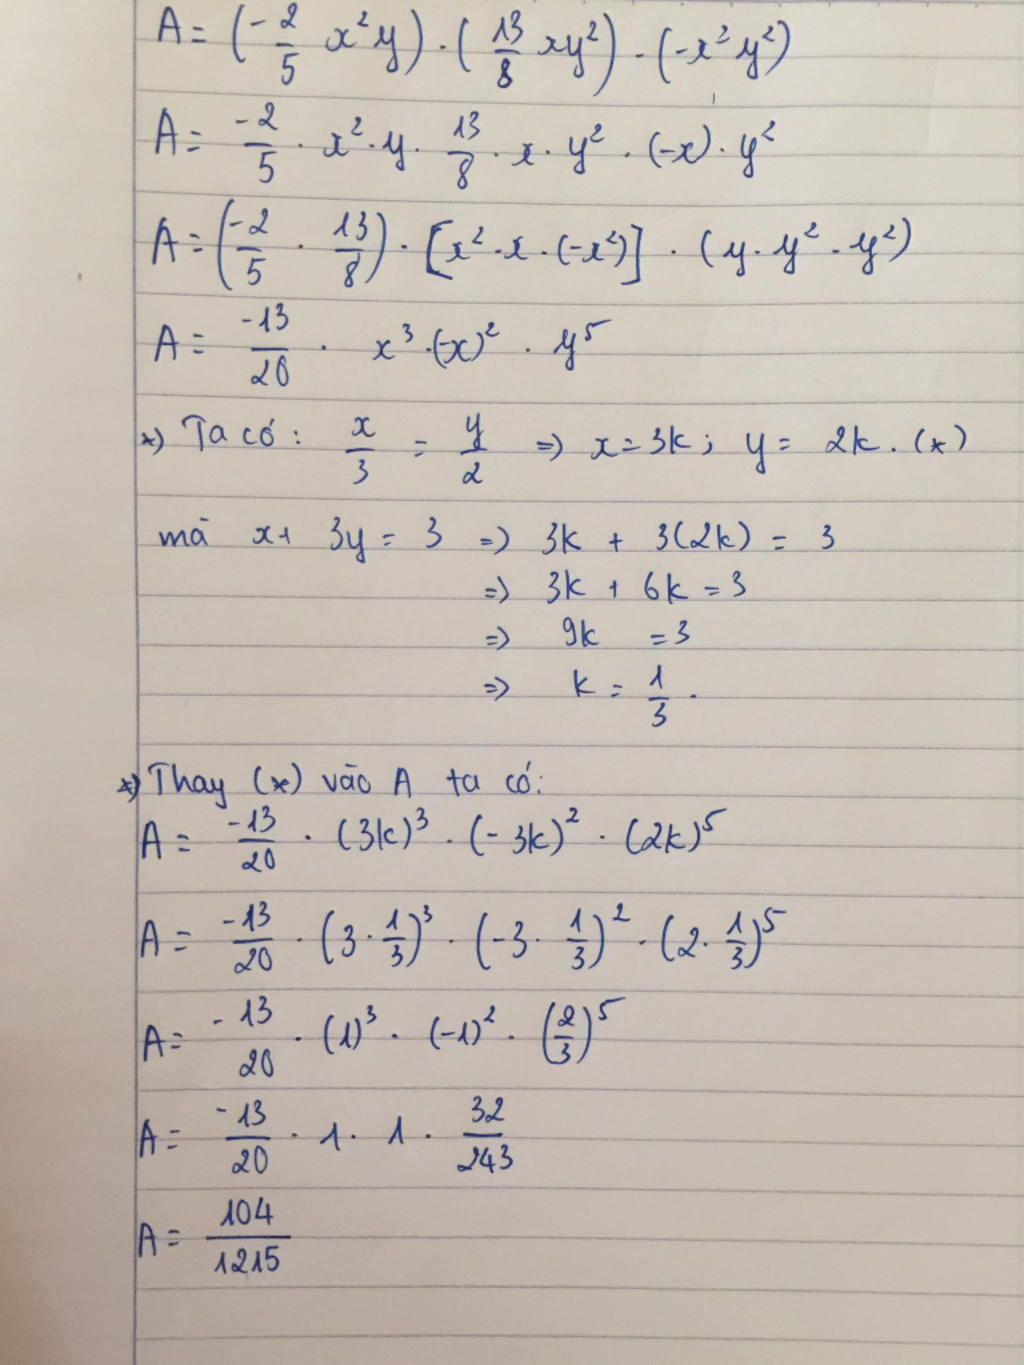 A = (-2/5 x²y) . (13/8 xy²) . (-x²y²)
A = -2/5 . x² . y . 13/8 . x . y² . (-x) . y²
A = (-2/5 . 13/8) . [x² . x . (-x²)] . (y . y² . y²)
A = -13/20 . x³ . (-x)² . y⁵
*) Ta có : x/3 = y/2 => x = 3k ; y = 2k . (*)
mà x + 3y = 3 => 3k + 3(2k) = 3
=> 3k + 6k = 3
=> 9k = 3
=> k = 1/3 .
*) Thay (*) vào A ta có :
A = -13/20 . (3k)³ . (-3k)² . (2k)⁵
A = -13/20 . (3 . 1/3)³ . (-3 . 1/3)² . (2 . 1/3)⁵
A = -13/20 . (1)³ . (-1)² . (2/3)⁵
A = -13/20 . 1 . 1 . 32/243
A = 104/1215